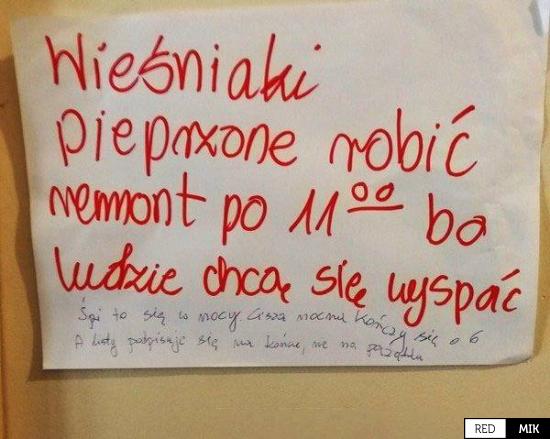 Wieśniaki
pieprzone robić
remont po 11⁰⁰ bo
ludzie chcą się wyspać
Śpi to się w nocy. Cisza nocna kończy się o 6
A listy podpisuje się na końcu, nie na początku
RED MIK